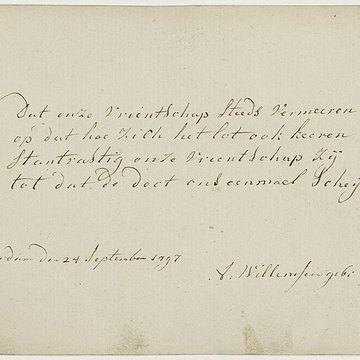 Dat onze Vrientschap Steeds Vermeeren
op dat hoe zich het lot ook keeren
Stantvastig onze Vrientschap Zij
tot dat De doot ons eenmael Schey
dam den 24 September 1797
A. Willemsen gebo